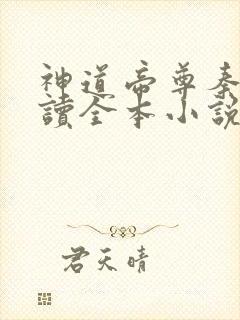 神道帝尊秦
讀全本小說
君天晴